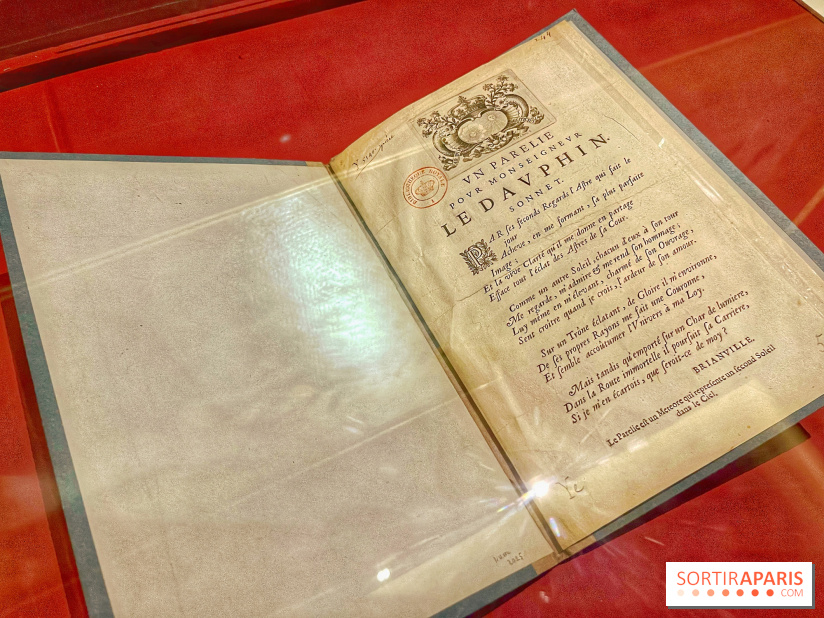 VN PARELIE
POVR MONSEIGNEVR
LE DAVPHIN.
SONNET.
PAR ses seconds Regards l'Astre qui fait le
jour
Acheve, en me formant, sa plus parfaite
Image;
Et la vive Clarté qu'il me donne en partage
Efface tout l'éclat des Astres de sa Cour.
Comme un autre Soleil, chacun d'eux à son tour
Me regarde, m'admire & me rend son hommage;
Luy même en m'élevant, charmé de son Ouvrage,
Sent croître quand je crois, l'ardeur de son amour.
Sur un Trône éclatant, de Gloire il m'environne,
De ses propres Rayons me fait une Couronne,
Et semble accoûtumer l'Vnivers à ma Loy.
Mais tandis qu'emporté sur un Char de lumiere,
Dans la Route immortelle il poursuit sa Carriere,
Si je m'en écartois, que seroit-ce de moy?
BRIANVILLE.
Le Parelie est un Meteore qui represente un second Soleil
dans le Ciel.
Ye
SORTIRAPARIS
.COM